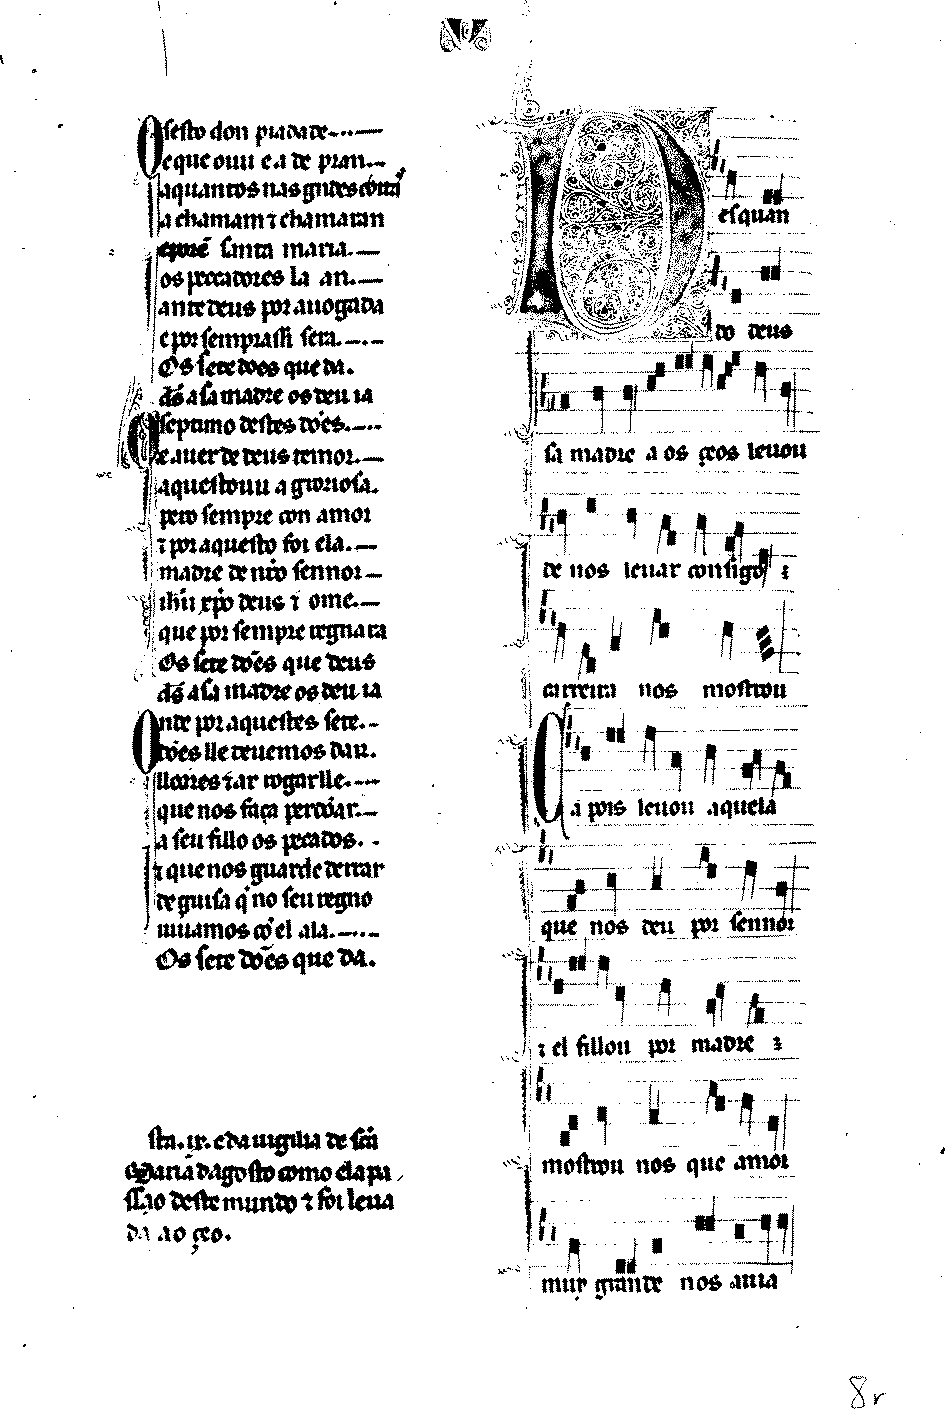 O sesto don piadade
e que ouu ela de pran
a quantos nas gndes coita
a chamam ⁊ chamaran
e poren̄ santa maria.
os pecadores la an
ante deus por auogada
e por sempr assi sera.
Os sete dões que da.
ds̃ a sa madre os deu ia
O septimo destes dões.
e auer de deus temor.
aquest ouu a gloriosa.
pero sempre con amor
⁊ por aquesto foi ela.
madre de nr̃o sennor
ihũ xp̃o deus ⁊ ome.
que por sempre regnara
Os sete dões que deus
ds̃ a sa madre os deu ia
Onde por aquestes sete.
dões lle deuemos dar.
llores ⁊ ar rogarlle.
que nos faça perdõar.
a seu fillo os pecados.
⁊ que nos guarde d errar
de guisa q̃ no seu regno
uiuamos cõ el ala.
Os sete dões que da.
sta .ix. e da uigilia de sc̃a
Maria d agosto como ela pa
ssao deste mundo ⁊ foi leua
da ao çeo.
Desquan
do deus
sa madre a os çeos leuou
de nos leuar consigo ⁊
carreira nos mostrou
Ca pois leuou aquela
que nos deu por sennor
⁊ el fillou por madre ⁊
mostrou nos que amor
muy grande nos auia
8r